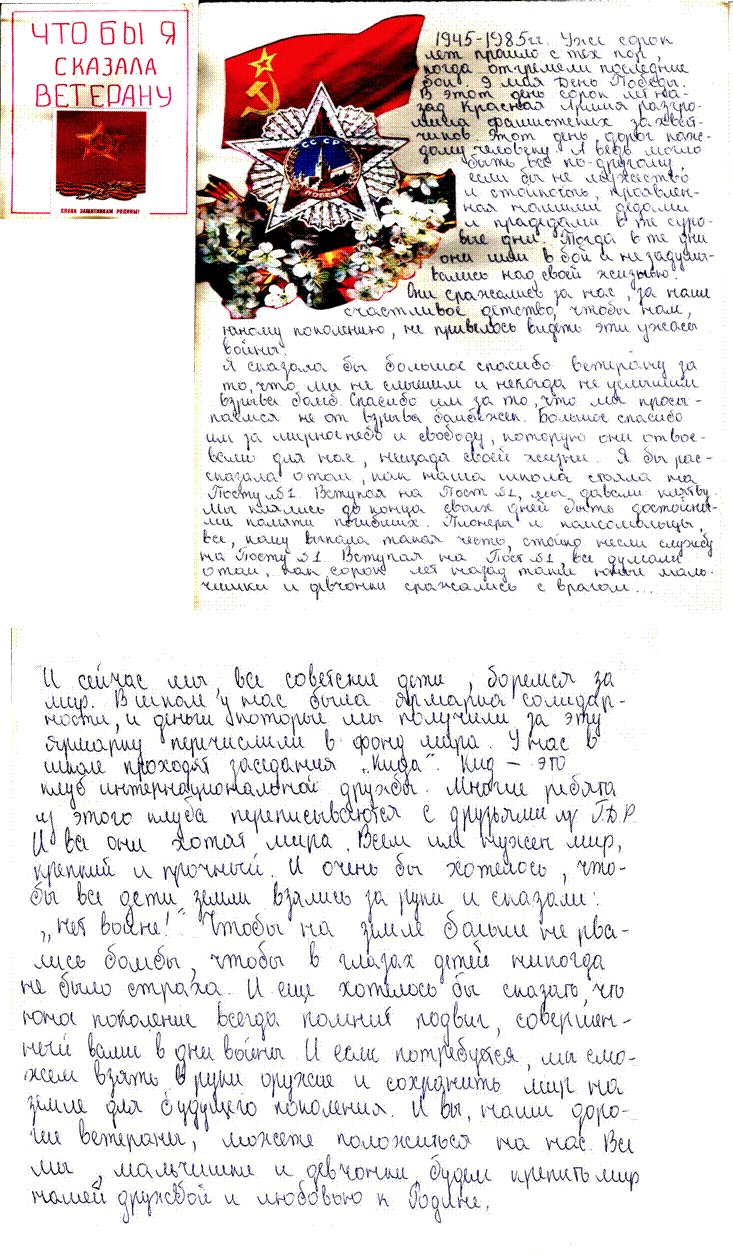 ЧТО БЫ Я
СКАЗАЛА
ВЕТЕРАНУ
СЛАВА ЗАЩИТНИКАМ РОДИНЫ!
СССР
1945-1985 гг. Уже сорок
лет прошло с тех пор,
когда отгремели последние
бои. 9 мая День Победы.
В этот день сорок лет на-
зад Красная Армия разгро-
мила фашистских захват-
чиков. Этот день дорог каж-
дому человеку. А ведь могло
быть все по-другому,
если бы не мужество
и стойкость, проявлен-
ная нашими дедами
и прадедами в те суро-
вые дни. Тогда в те дни
они шли в бой и не задумы-
вались над своей жизнью.
Они сражались за нас, за наше
счастливое детство, чтобы нам,
юному поколению, не привелось видеть эти ужасы
войны.
Я сказала бы большое спасибо ветерану за
то, что мы не слышим и никогда не услышим
взрыва бомб. Спасибо им за то, что мы просы-
паемся не от взрыва бомбежек. Большое спасибо
им за мирное небо и свободу, которую они отвое-
вали для нас, нещадя своей жизни. Я бы рас-
сказала о том, как наша школа стояла на
Посту №1. Вступая на Пост №1, мы давали клятву.
Мы клялись до конца своих дней быть достойны-
ми памяти погибших. Пионеры и комсомольцы,
все, кому выпала такая честь, стойко несли службу
на Посту №1. Вступая на Пост №1, все думали
о том, как сорок лет назад такие юные маль-
чишки и девчонки сражались с врагом...
И сейчас мы, все советские дети, боремся за
мир. В школе у нас была ярмарка солидар-
ности, и деньги которые мы получили за эту
ярмарку перечислили в фонд мира. У нас в
школе проходят заседания „Кида". Кид – это
клуб интернациональной дружбы. Многие ребята
из этого клуба переписываются с друзьями из Г.Д.Р.
И все они хотят мира. Всем им нужен мир,
крепкий и прочный. И очень бы хотелось, что-
бы все дети земли взялись за руки и сказали:
„Нет войне!" Чтобы на земле больше не рва-
лись бомбы, чтобы в глазах детей никогда
не было страха. И еще хотелось бы сказать, что
юное поколение всегда помнит подвиг, совершен-
ный вами в дни войны. И если потребуется, мы смо-
жем взять в руки оружие и сохранить мир на
земле для будущего поколения. И вы, наши доро-
гие ветераны, можете положиться на нас. Все
мы, мальчишки и девчонки, будем крепить мир
нашей дружбой и любовью к Родине.